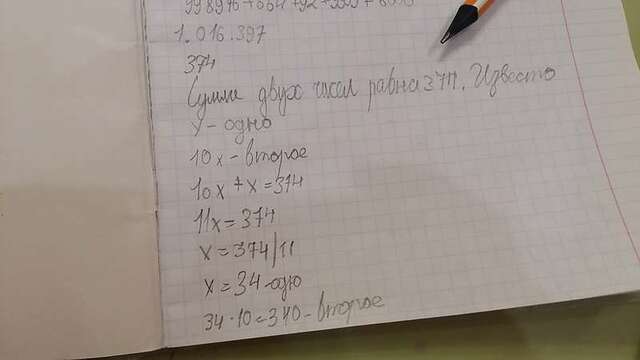 1.016.397
374
Сумма двух чисел равна 374. Известно
у - одно
10х - второе
10х + х = 374
11х = 374
х = 374/11
х = 34 - одно
34 · 10 = 340 - второе